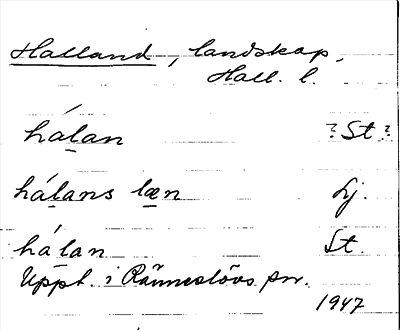 Halland, landskap,
Hall. l.
hálan ? St ?
hálans læn Lj.
hálan St.
Uppt. i Ränneslövs sn.
1947